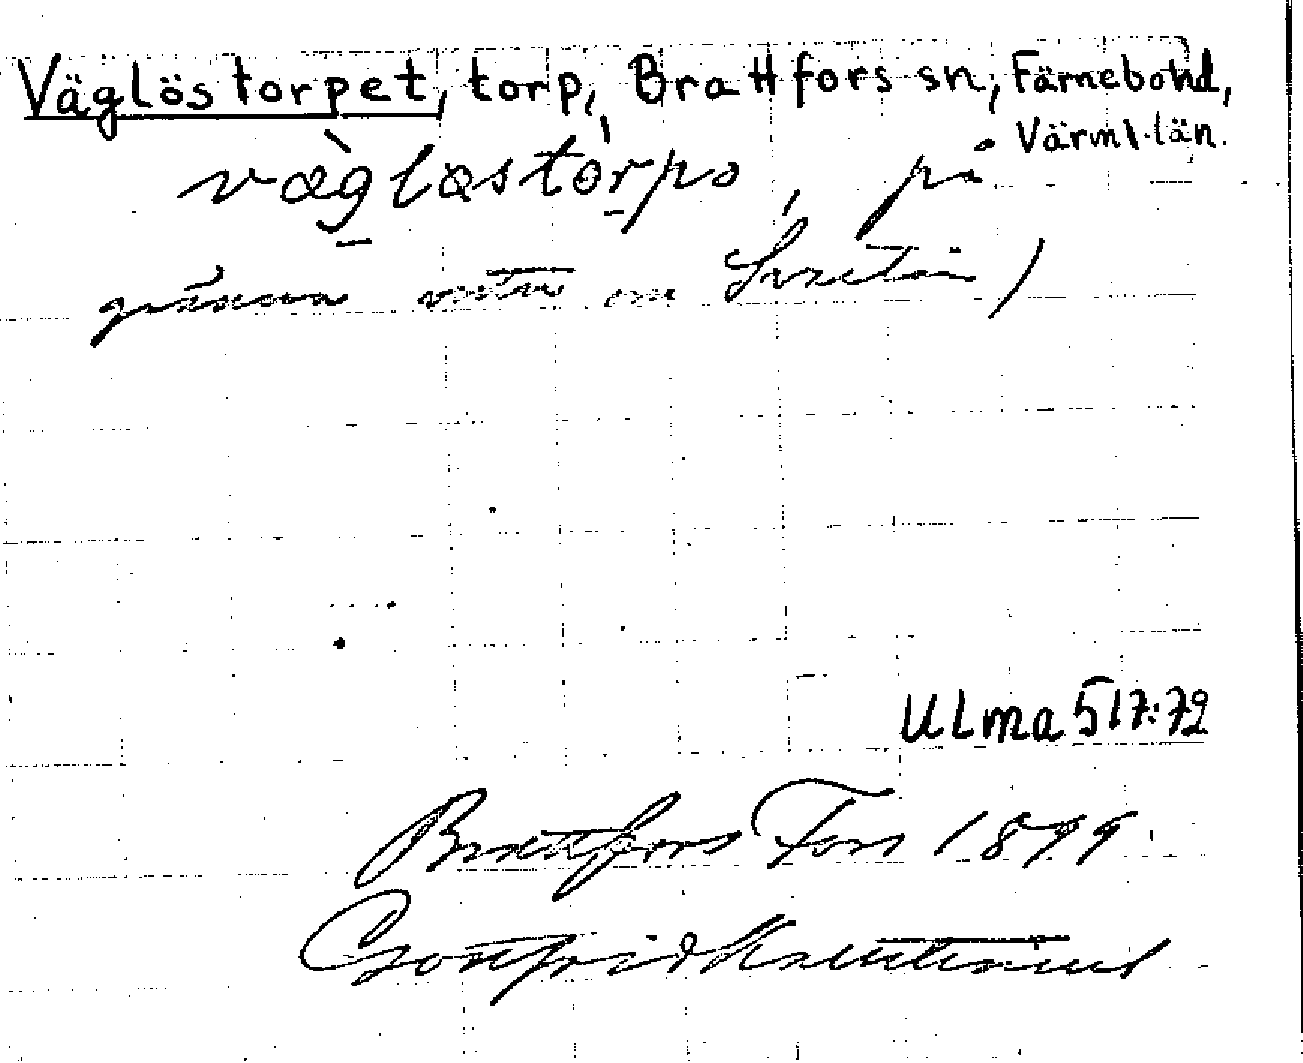 Väglöstorpet, torp, Brattfors sn, Färnebo hd,
Värml. län.
vægløstorpo, på
gränsen väster om
ULma 517:72
Brattfors Fors 1899.
Gottfrid Kallstenius